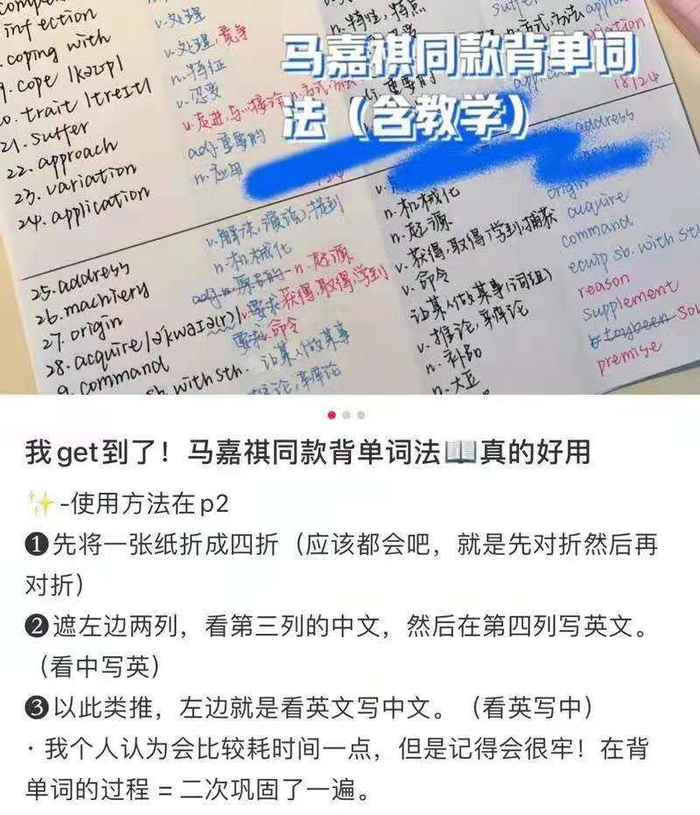 infection
coping with
cope /kəʊp/
trait /treɪt/
21. suffer
22. approach
23. variation
24. application
v. 处理
v. 处理, 竞争
n. 特征
v. 忍受
adj. 重要的
n. 应用
n. 特性, 特点
18/24
马嘉祺同款背单词
法（含教学）
25. address
26. machiery
27. origin
28. acquire /ə'kwaɪə(r)/
9. command
sb. with sth.
n. 机械化
n. 起源
v. 要求 获得, 取得, 学到
命令
让某人做某事
n. 机械化
n. 起源
v. 获得, 取得, 学到, 捕获
v. 命令
让某人做某事(词组)
v. 推论, 辩论
n. 补助
n. 大豆
address
origin
acquire
command
equip sb. with sth
reason
supplement
premise
我get到了！马嘉祺同款背单词法📖真的好用
✨-使用方法在p2
❶先将一张纸折成四折（应该都会吧，就是先对折然后再
对折）
❷遮左边两列，看第三列的中文，然后在第四列写英文。
（看中写英）
❸以此类推，左边就是看英文写中文。（看英写中）
· 我个人认为会比较耗时间一点，但是记得会很牢！在背
单词的过程 = 二次巩固了一遍。